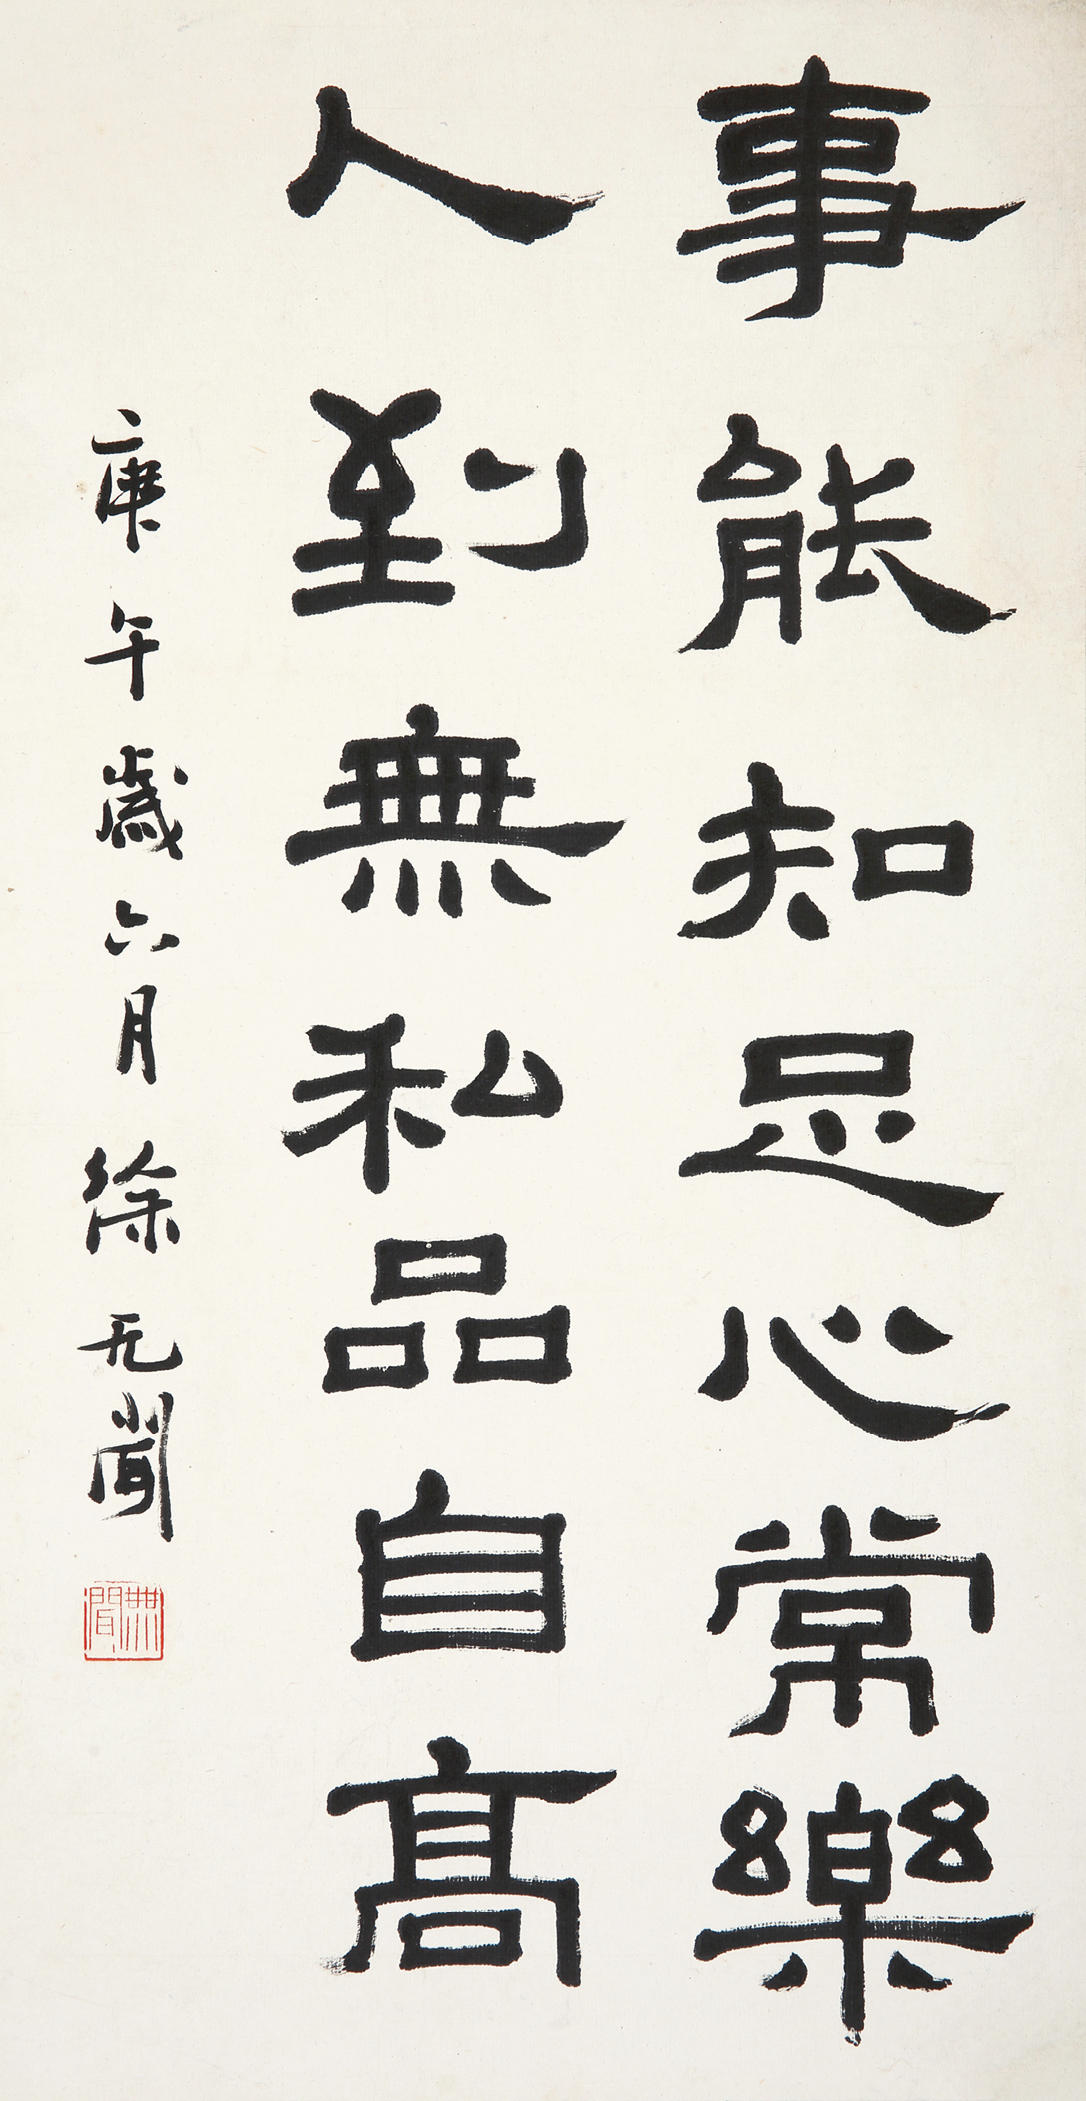 事能知足心常樂
人到無私品自高
庚午歲六月徐无聞
無聞